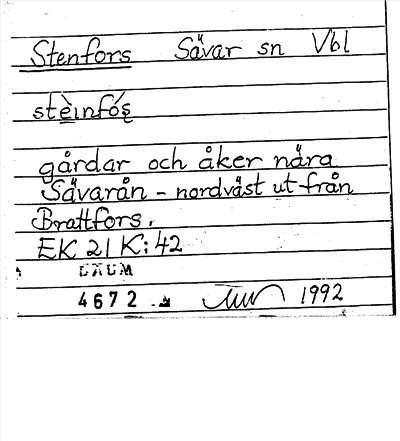 Stenfors Sävar sn Vbl
stèinfó̜s̜
gårdar och åker nära
Sävarån - nordväst ut från
Brattfors.
EK 21 K:42
DAUM
4672
1992